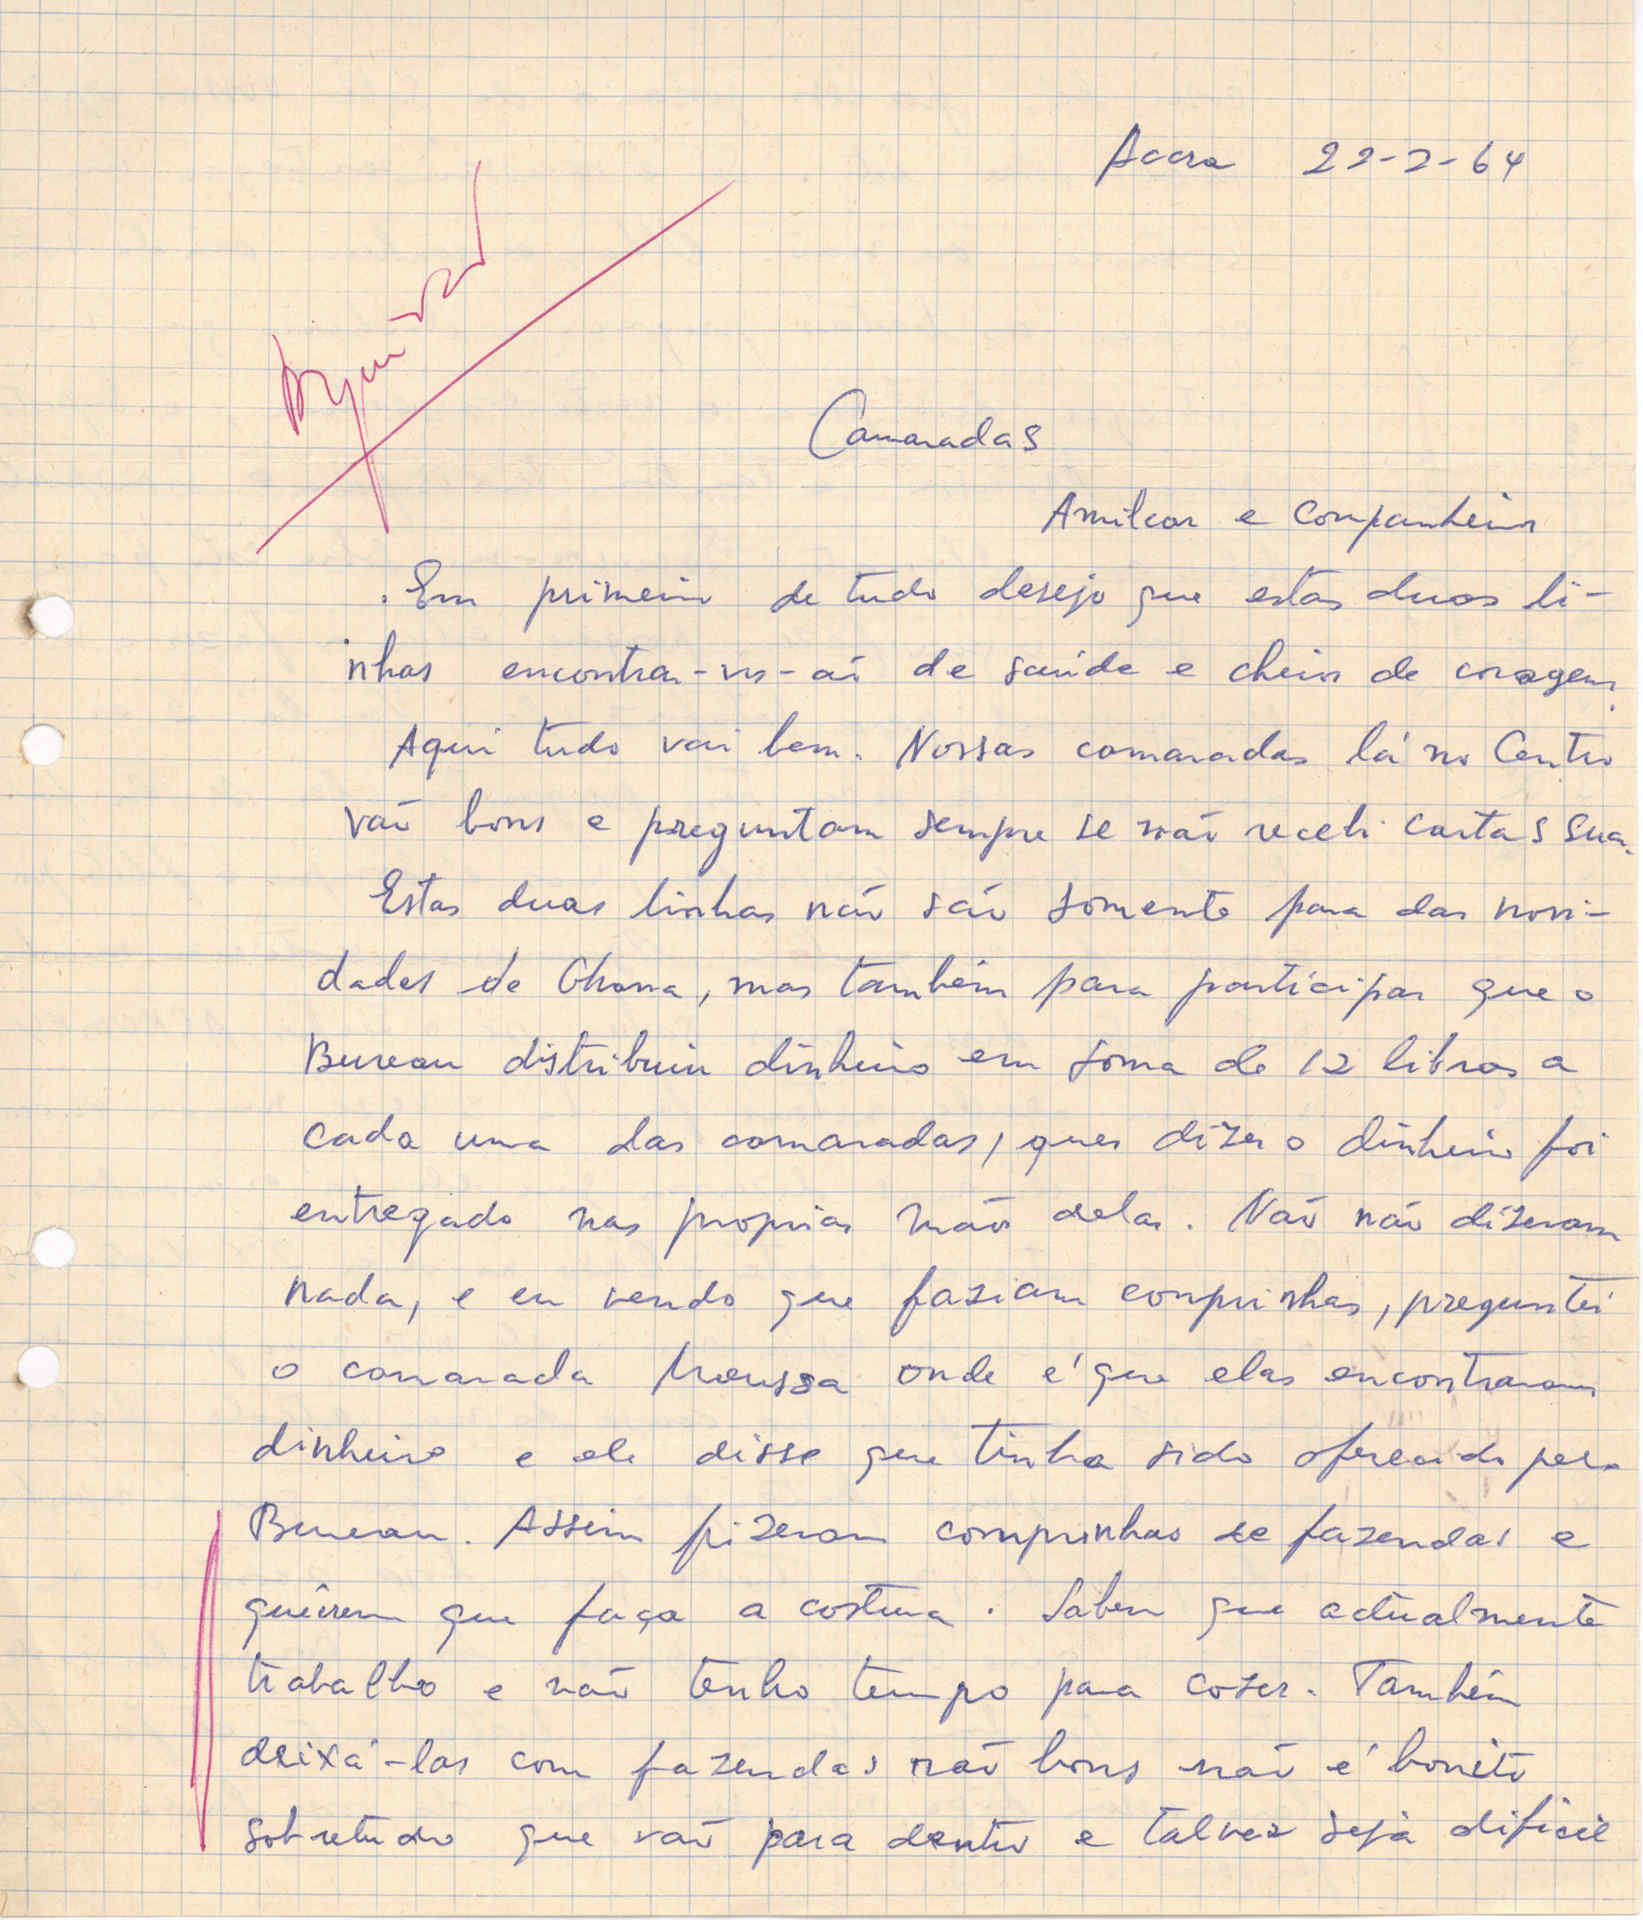 Accra 22-2-64
Arquivar
Camaradas
Amilcar e companheiros
. Em primeiro de tudo desejo que estas duas li-
nhas encontra-vos-ai de saúde e cheios de coragem.
Aqui tudo vai bem. Nossas camaradas lá no Centro
vão bons e preguntam sempre se não recebi cartas suas.
Estas duas linhas não são somente para dar novi-
dades de Ghana, mas também para participar que o
Bureau distribuiu dinheiro em soma de 12 libras a
cada uma das camaradas, quer dizer o dinheiro foi
entregado nas proprias mãos delas. Não não dizeram
nada, e eu vendo que faziam comprinhas, preguntei
o camarada Moussa onde é que elas encontraram
dinheiro e ele disse que tinha sido oferecido pelo
Bureau. Assim fizeram comprinhas de fazendas e
quêirem que faça a costura. Sabem que actualmente
trabalho e não tenho tempo para cozer. Também
deixá-las com fazendas não bons não é bonito
sobretudo que vão para dentro e talvez seja dificil